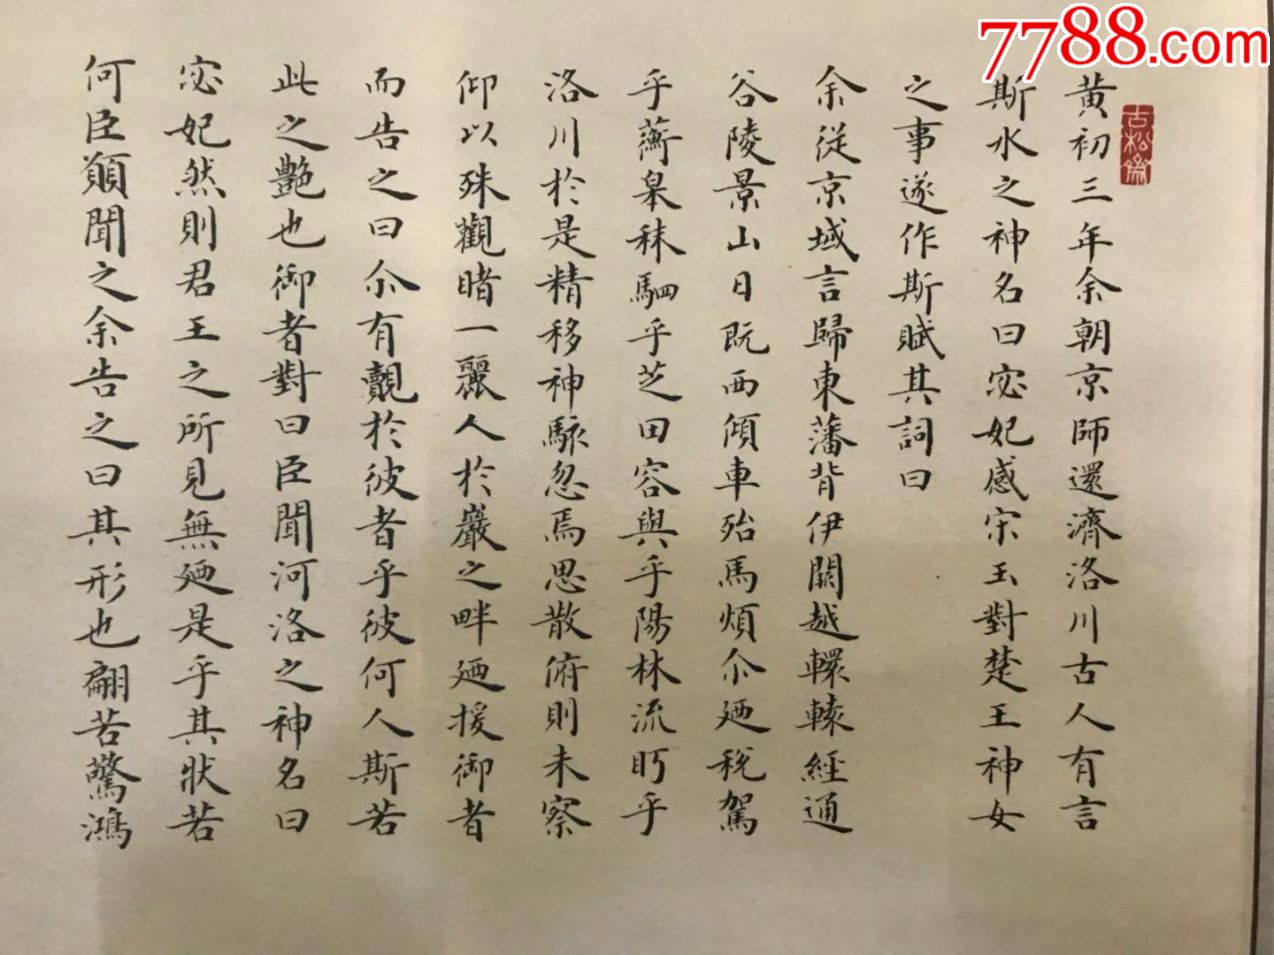 7788.com
黄初三年余朝京師還濟洛川古人有言
斯水之神名曰宓妃感宋玉對楚王神女
之事遂作斯賦其詞曰
余從京域言歸東藩背伊闕越轘轅經通
谷陵景山日既西傾車殆馬煩尒廼稅駕
乎蘅皋秣駟乎芝田容與乎陽林流眄乎
洛川於是精移神駭忽焉思散俯則未察
仰以殊觀睹一麗人於巖之畔廼援御者
而告之曰尒有覿於彼者乎彼何人斯若
此之艷也御者對曰臣聞河洛之神名曰
宓妃然則君王之所見無廼是乎其狀若
何臣願聞之余告之曰其形也翩若驚鴻